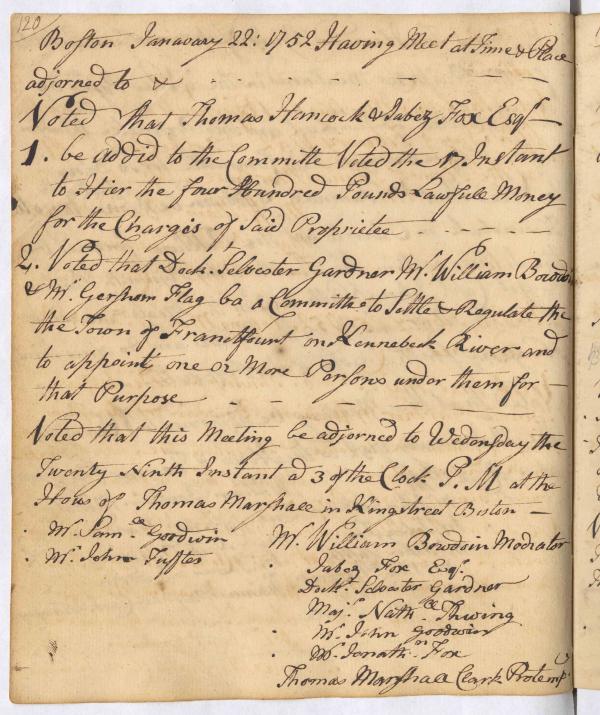 120
Boston Janavary 22: 1752 Having Meet at Time & Place
adjorned to &
Voted that Thomas Hancock & Jabez Fox Esqrs
1. be added to the Committe Voted the 17 Instant
to Hier the four Hundred Pounds Lawfull Money
for the Chargis of Said Proprietee
2. Voted that Dockt. Selvester Gardner Mr. William Bowdoin
& Mr. Gershom Flag ba a Committe to Settle & Regulate the
the Town of Franckfourt on Kennebeck River and
to appoint one or More Parsons under them for
that Purpose
Voted that this Meeting be adjorned to Wedensday the
Twenty Ninth Instant a 3 of the Clock P. M at the
Hous of Thomas Marshall in Kingstreet Boston
Mr. Samll. Goodwin
Mr. John Tuffter
Mr. William Bowdoin Modrator
Jabez Fox Esqr.
Dockt. Selvester Gardner
Majr. Nathll. Thwing
Mr. John Goodwin
Mr. Jonathn. Fox
Thomas Marshall Clark Protemp